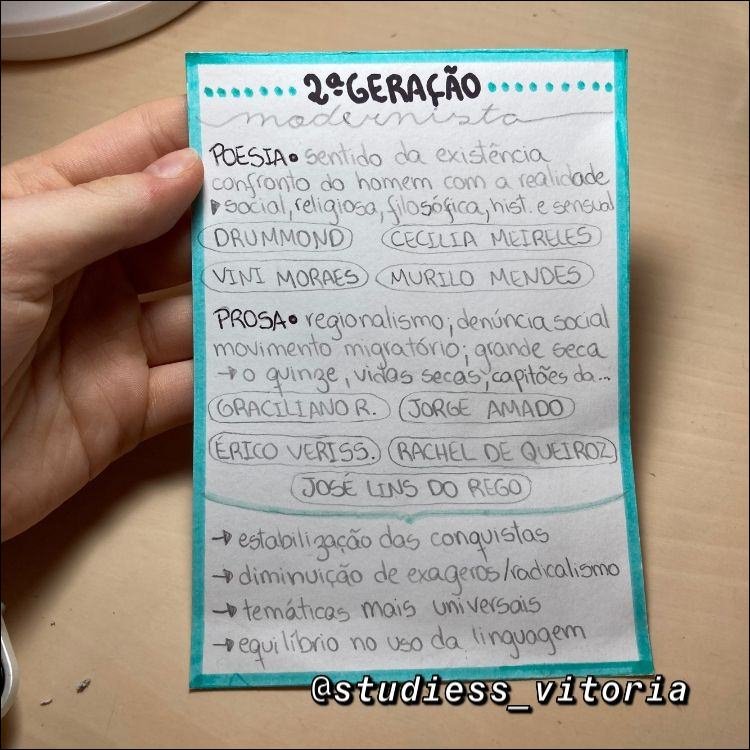 2ª GERAÇÃO
modernista
POESIA• sentido da existência
confronto do homem com a realidade
▸social, religiosa, filosófica, hist. e sensual
DRUMMOND CECILIA MEIRELES
VINI MORAES MURILO MENDES
PROSA• regionalismo; denúncia social
movimento migratório; grande seca
→ o quinze, vidas secas, capitões da...
GRACILIANO R. JORGE AMADO
ÉRICO VERISS. RACHEL DE QUEIROZ
JOSÉ LINS DO REGO
→ estabilização das conquistas
→ diminuição de exageros/radicalismo
→ temáticas mais universais
→ equilíbrio no uso da linguagem
@studiess_vitoria